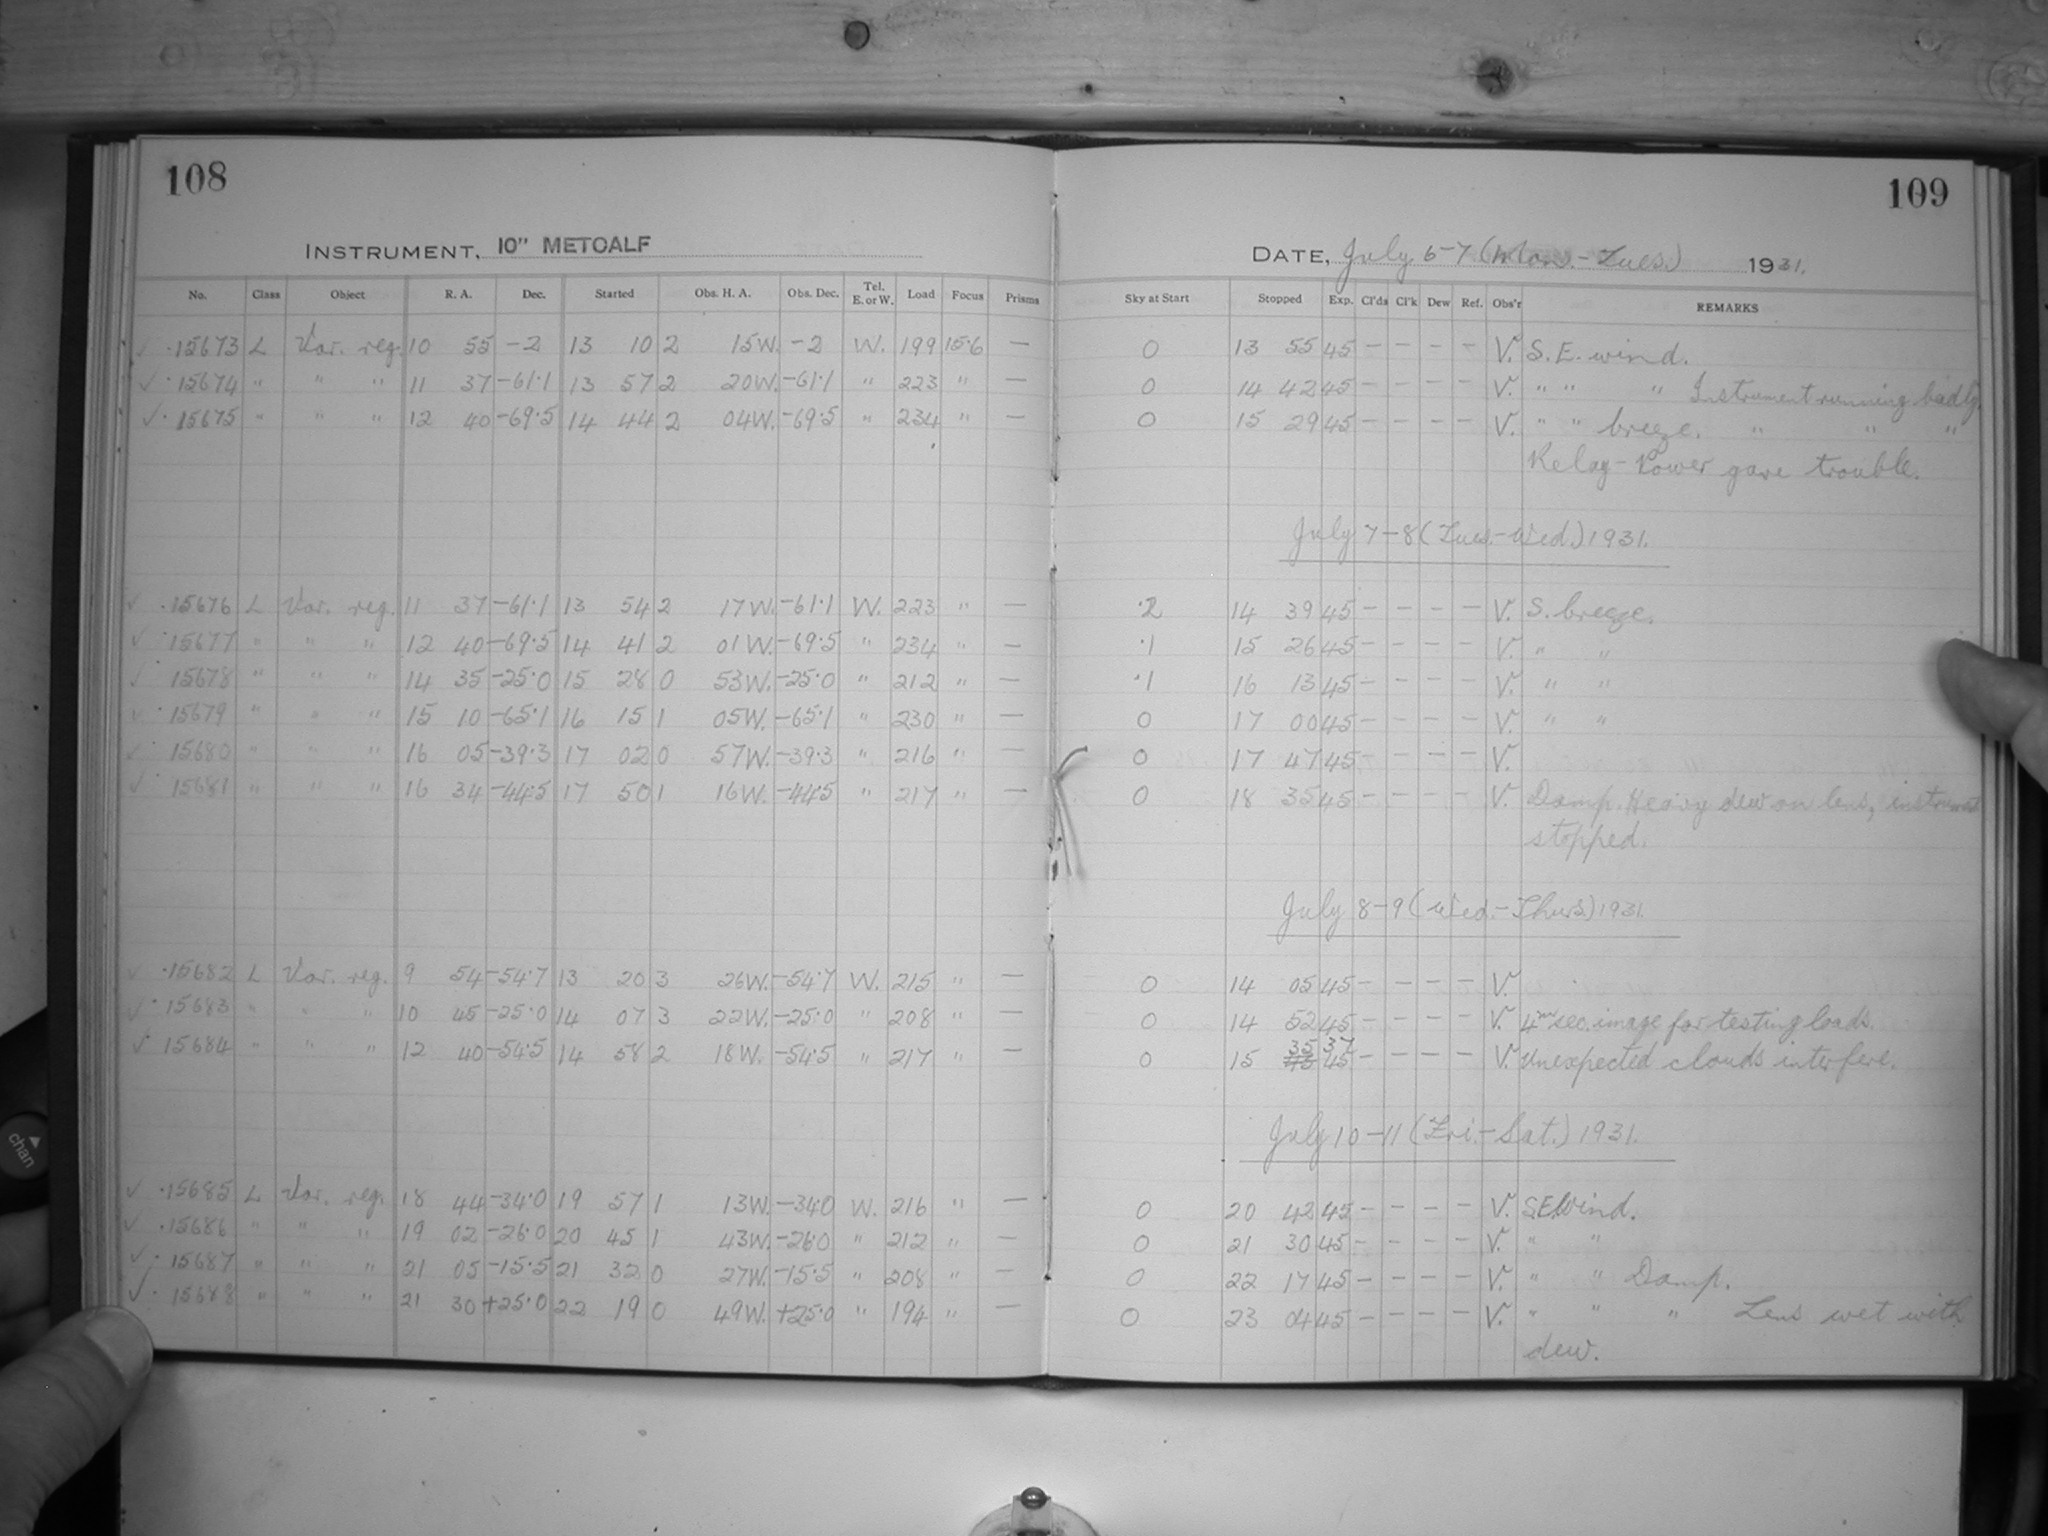 108
INSTRUMENT, 10" METCALF
No. Class Object R. A. Dec. Started Obs. H. A. Obs. Dec. Tel. E. or W. Load Focus Prisms
✓ ·15673 L Var. reg. 10 55 -2 13 10 2 15W. -2 W. 199 15.6 —
✓ ·15674 " " " 11 37 -61.1 13 57 2 20W. -61.1 " 223 " —
✓ ·15675 " " " 12 40 -69.5 14 44 2 04W. -69.5 " 234 " —
✓ ·15676 L Var. reg. 11 37 -61.1 13 54 2 17W. -61.1 W. 223 " —
✓ ·15677 " " " 12 40 -69.5 14 41 2 01W. -69.5 " 234 " —
✓ 15678 " " " 14 35 -25.0 15 28 0 53W. -25.0 " 212 " —
✓ ·15679 " " " 15 10 -65.1 16 15 1 05W. -65.1 " 230 " —
✓ ·15680 " " " 16 05 -39.3 17 02 0 57W. -39.3 " 216 " —
✓ ·15681 " " " 16 34 -44.5 17 50 1 16W. -44.5 " 217 " —
✓ ·15682 L Var. reg. 9 54 -54.7 13 20 3 26W. -54.7 W. 215 " —
✓ ·15683 " " " 10 45 -25.0 14 07 3 22W. -25.0 " 208 " —
✓ ·15684 " " " 12 40 -54.5 14 58 2 18W. -54.5 " 217 " —
✓ ·15685 L Var. reg. 18 44 -34.0 19 57 1 13W. -34.0 W. 216 " —
✓ ·15686 " " " 19 02 -26.0 20 45 1 43W. -26.0 " 212 " —
✓ ·15687 " " " 21 05 -15.5 21 32 0 27W. -15.5 " 208 " —
✓ ·15688 " " " 21 30 +25.0 22 19 0 49W. +25.0 " 194 " —
109
DATE, July 6-7 (Mon.-Tues.) 1931.
Sky at Start Stopped Exp. Cl'ds Cl'k Dew Ref. Obs'r REMARKS
0 13 55 45 — — — — V. S.E. wind.
0 14 42 45 — — — — V. " " " Instrument running badly.
0 15 29 45 — — — — V. " " breeze. " " "
Relay-Power gave trouble.
July 7-8 (Tues.-Wed.) 1931.
.2 14 39 45 — — — — V. S. breeze.
.1 15 26 45 — — — — V. " "
.1 16 13 45 — — — — V. " "
0 17 00 45 — — — — V. " "
0 17 47 45 — — — — V.
0 18 35 45 — — — — V. Damp. Heavy dew on lens, instrument
stopped.
July 8-9 (Wed.-Thurs.) 1931.
0 14 05 45 — — — — V.
0 14 52 45 — — — — V. sec. image for testing loads.
35 37
0 15 45 45 — — — — V. Unexpected clouds interfere.
July 10-11 (Fri.-Sat.) 1931.
0 20 42 45 — — — — V. S.E. Wind.
0 21 30 45 — — — — V. " "
0 22 17 45 — — — — V. " " Damp.
0 23 04 45 — — — — V. " " " Lens wet with
dew.
chan